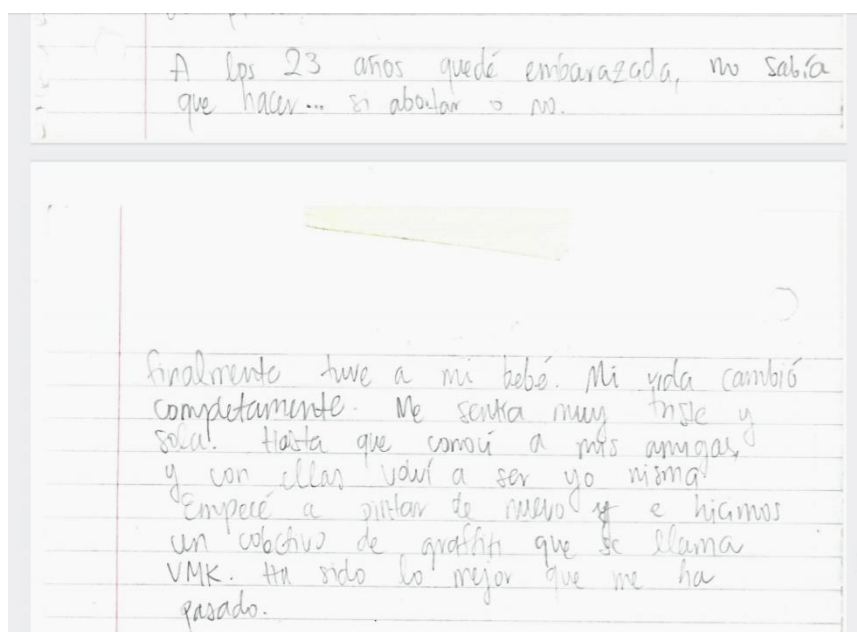 A los 23 años quedé embarazada, no sabía
que hacer... si abortar o no.
finalmente tuve a mi bebé. Mi vida cambió
completamente. Me sentía muy triste y
sola. Hasta que conocí a mis amigas,
y con ellas volví a ser yo misma
Empecé a pintar de nuevo y e hicimos
un colectivo de graffiti que se llama
VMK. Ha sido lo mejor que me ha
pasado.